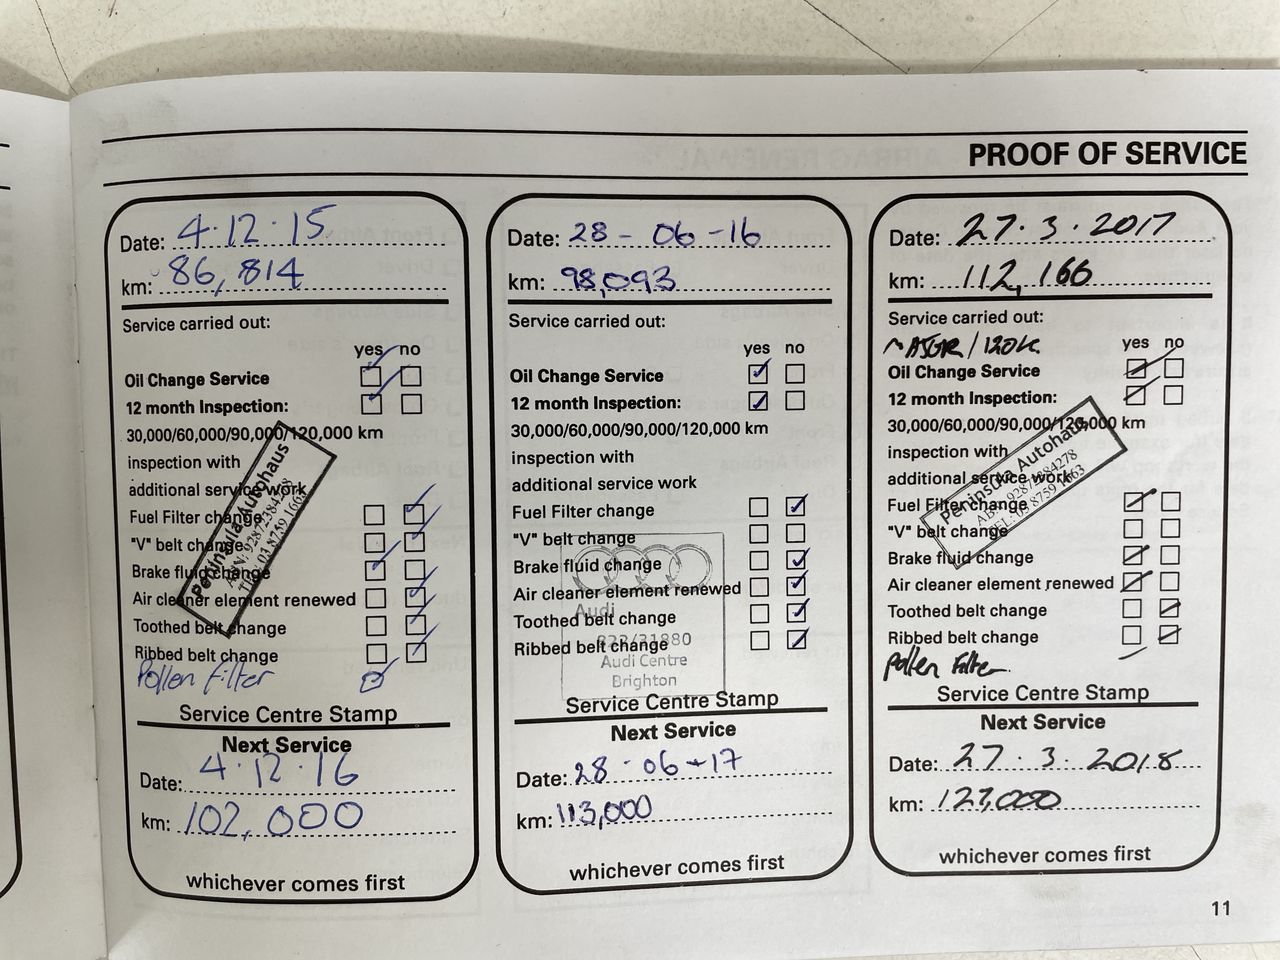 PROOF OF SERVICE
Date: 4.12.15
km: 86,814
Service carried out:
yes no
Oil Change Service
12 month Inspection:
30,000/60,000/90,000/120,000 km
inspection with
additional service work
Fuel Filter change
"V" belt change
Brake fluid change
Air cleaner element renewed
Toothed belt change
Ribbed belt change
Pollen Filter
Peninsula Autohaus
Service Centre Stamp
Next Service
Date: 4.12.16
km: 102,000
whichever comes first
Date: 28-06-16
km: 98,093
Service carried out:
yes no
Oil Change Service
12 month Inspection:
30,000/60,000/90,000/120,000 km
inspection with
additional service work
Fuel Filter change
"V" belt change
Brake fluid change
Air cleaner element renewed
Toothed belt change
Ribbed belt change
Audi
Audi Centre
Brighton
Service Centre Stamp
Next Service
Date: 28-06-17
km: 113,000
whichever comes first
Date: 27.3.2017
km: 112,166
Service carried out:
/120k
yes no
Oil Change Service
12 month Inspection:
30,000/60,000/90,000/120,000 km
inspection with
additional service work
Fuel Filter change
"V" belt change
Brake fluid change
Air cleaner element renewed
Toothed belt change
Ribbed belt change
Pollen Filter
Peninsula Autohaus
TEL: 03 8759 1663
Service Centre Stamp
Next Service
Date: 27.3.2018
km: 127,000
whichever comes first
11